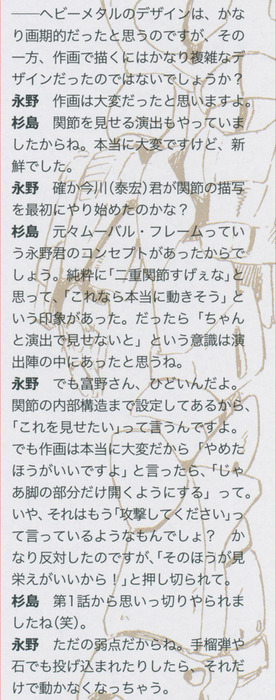 ――ヘビーメタルのデザインは、かな
り画期的だったと思うのですが、その
一方、作画で描くにはかなり複雑なデ
ザインだったのではないでしょうか?
永野　作画は大変だったと思いますよ。
杉島　関節を見せる演出もやっていま
したからね。本当に大変ですけど、新
鮮でした。
永野　確か今川(泰宏)君が関節の描写
を最初にやり始めたのかな?
杉島　元々ムーバル・フレームってい
う永野君のコンセプトがあったからで
しょう。純粋に「二重関節すげぇな」と
思って、「これなら本当に動きそう」と
いう印象があった。だったら「ちゃん
と演出で見せないと」という意識は演
出陣の中にあったと思うね。
永野　でも富野さん、ひどいんだよ。
関節の内部構造まで設定してあるから、
「これを見せたい」って言うんですよ。
でも作画は本当に大変だから「やめた
ほうがいいですよ」と言ったら、「じゃ
あ脚の部分だけ開くようにする」って。
いや、それはもう「攻撃してください」っ
て言っているようなもんでしょ?　か
なり反対したのですが、「そのほうが見
栄えがいいから!」と押し切られて。
杉島　第1話から思いっ切りやられま
したね(笑)。
永野　ただの弱点だからね。手榴弾や
石でも投げ込まれたりしたら、それだ
けで動かなくなっちゃう。